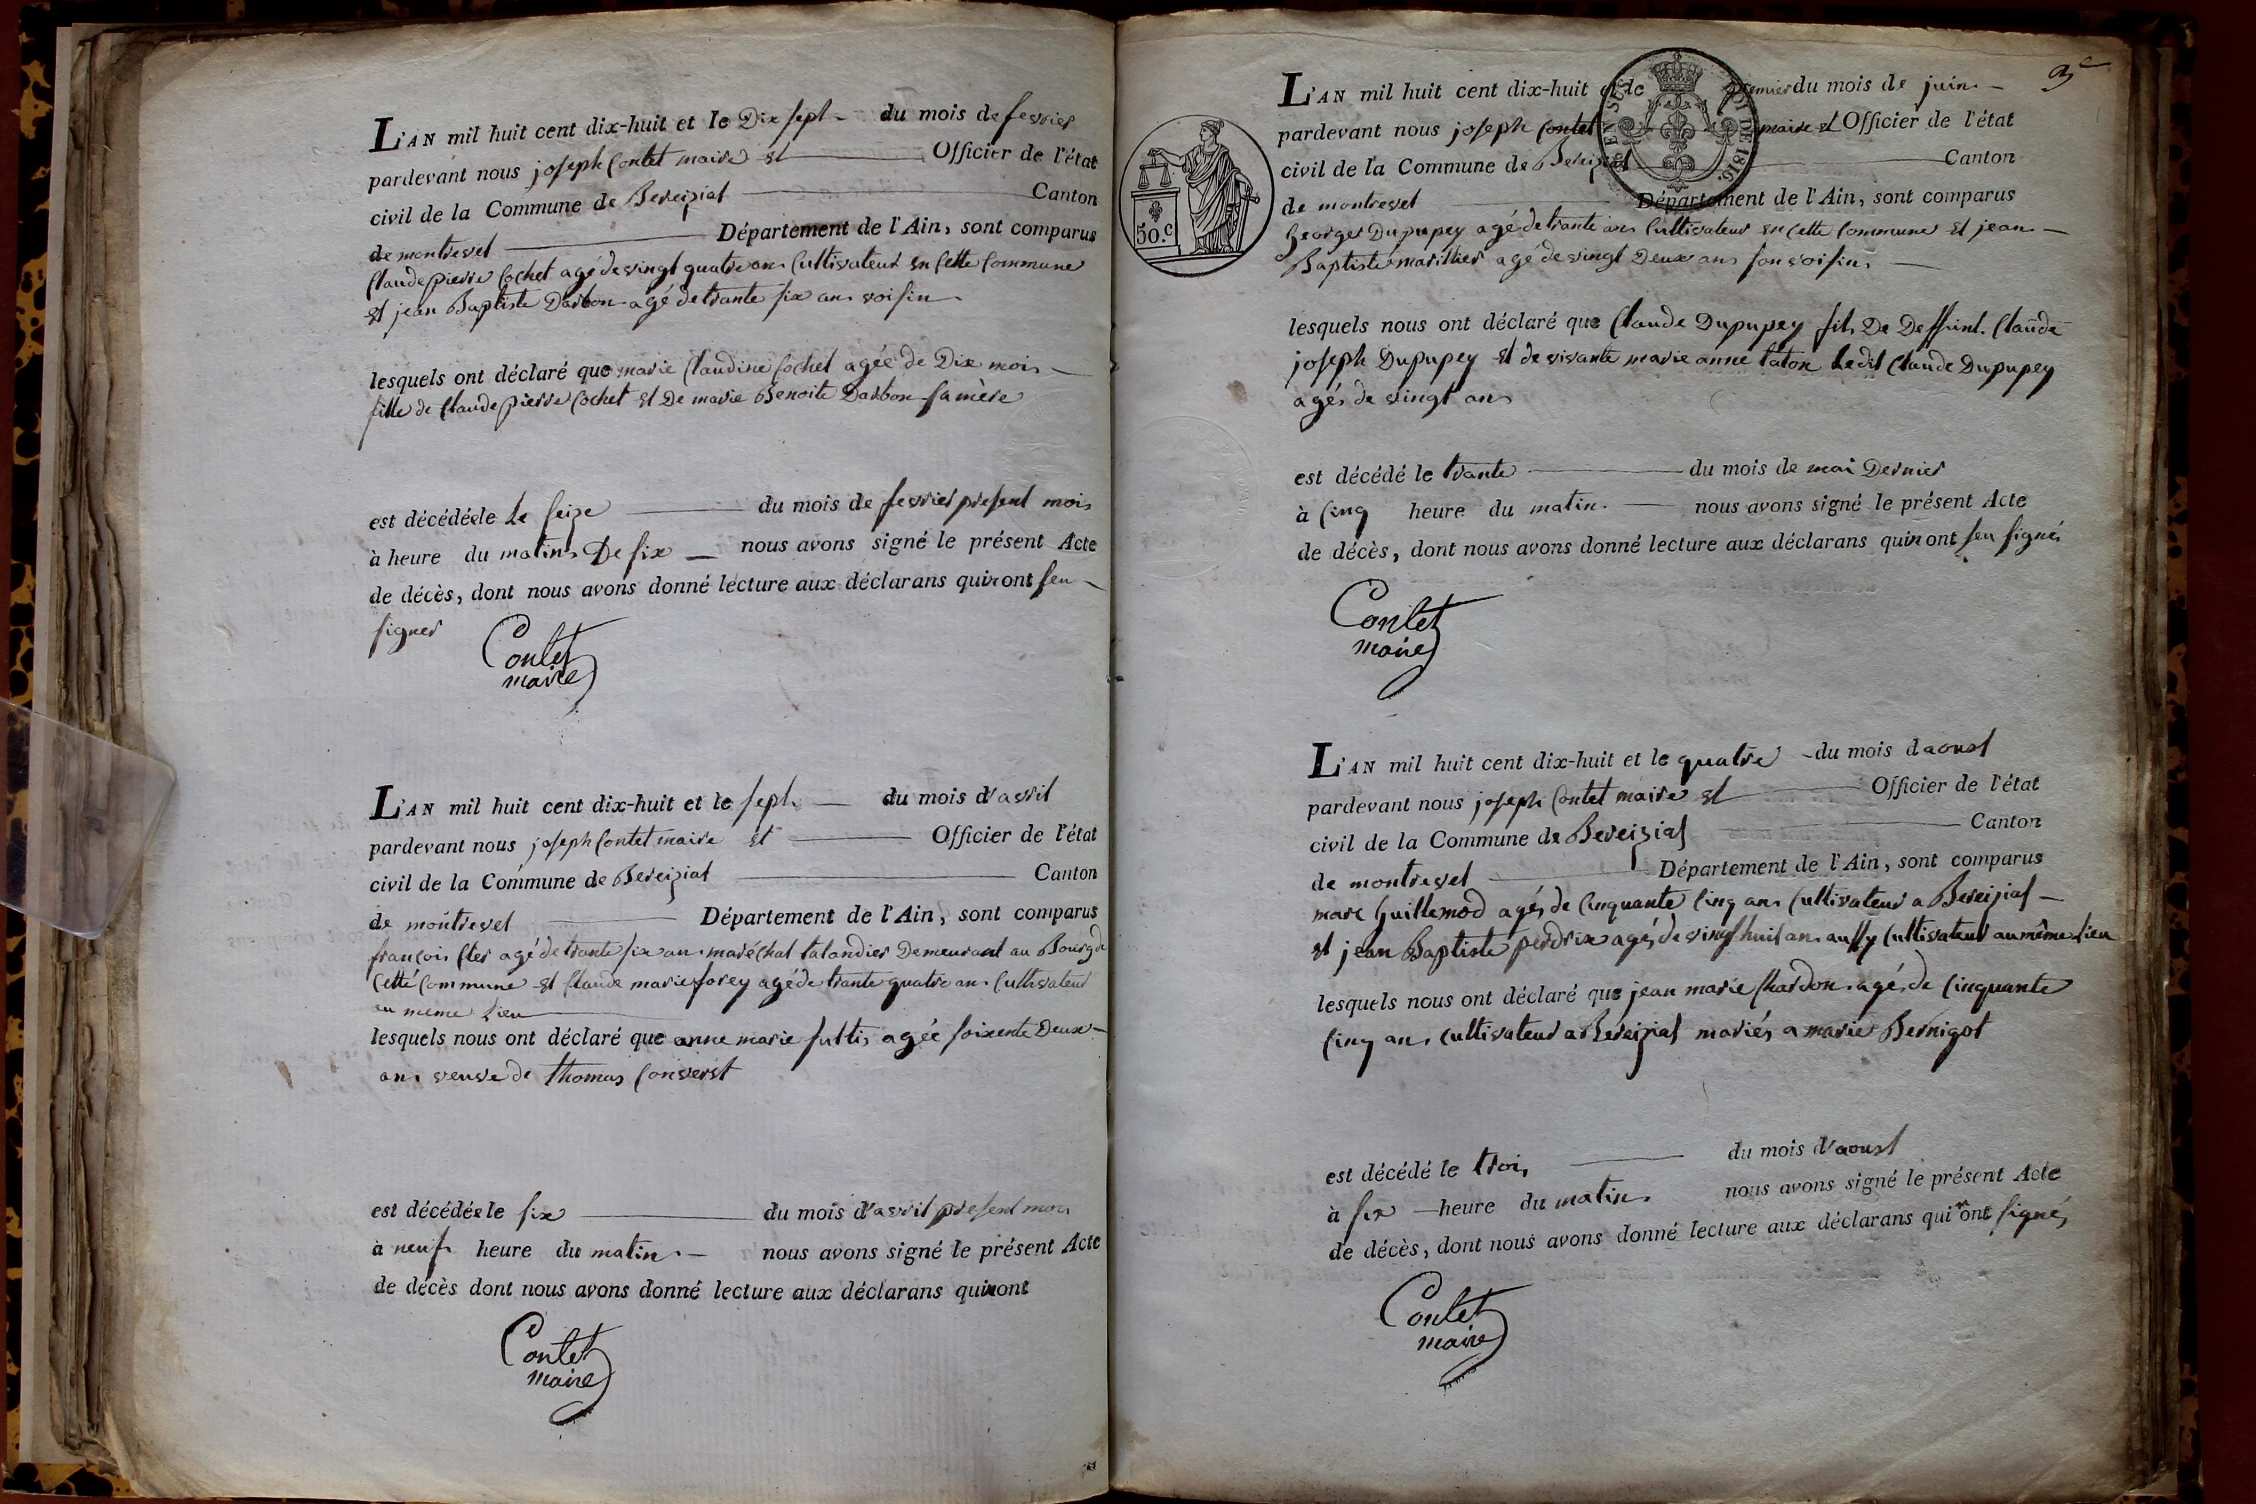 L'AN mil huit cent dix-huit et le Dix sept du mois de fevrier
pardevant nous joseph Contet maire et Officier de l'état
civil de la Commune de Bereiziat Canton
de montrevel Département de l'Ain, sont comparus
Claude pierre Cochet agé de vingt quatre ans Cultivateur en Cette Commune
et jean Baptiste Darbon agé de trante six ans voisin
lesquels ont déclaré que marie Claudine Cochet agée de Dix mois
fille de Claude pierre Cochet et De marie Benoite Darbon sa mère
est décédée le Le seize du mois de fevrier present mois
à heure du matin De six nous avons signé le présent Acte
de décès, dont nous avons donné lecture aux déclarans qui n'ont seu
signer
Contet
maire
L'AN mil huit cent dix-huit et le sept du mois d'avril
pardevant nous joseph Contet maire et Officier de l'état
civil de la Commune de Bereiziat Canton
de montrevel Département de l'Ain, sont comparus
françois agé de trante six ans maréchal talandier Demeurant au Bourg de
Cette Commune et Claude marie forey agé de trante quatre ans Cultivateur
au meme Lieu
lesquels nous ont déclaré que anne marie agée soixente Deux
ans veuve de thomas Convert
est décédée le six du mois d'avril present mois
à neuf heure du matin nous avons signé le présent Acte
de décès dont nous avons donné lecture aux déclarans qui n'ont
Contet
maire
3e
L'AN mil huit cent dix-huit et le premier du mois de juin
pardevant nous joseph Contet maire et Officier de l'état
civil de la Commune de Bereiziat Canton
de montrevel Département de l'Ain, sont comparus
50.c
ROI DE 1816.
Georges Dupupey agé de trante ans Cultivateur en Cette Commune et jean
Baptiste marillier agé de vingt Deux ans son voisin
lesquels nous ont déclaré que Claude Dupupey fils De Deffunt Claude
joseph Dupupey et de vivante marie anne taton Ledit Claude Dupupey
agés de vingt ans
est décédé le trante du mois de mai Dernier
à Cinq heure du matin nous avons signé le présent Acte
de décès, dont nous avons donné lecture aux déclarans qui n'ont seu signés
Contet
maire
L'AN mil huit cent dix-huit et le quatre du mois d'aoust
pardevant nous joseph Contet maire et Officier de l'état
civil de la Commune de Bereiziat Canton
de montrevel Département de l'Ain, sont comparus
marc Guillemod agés de Cinquante Cinq ans Cultivateur a Bereiziat
et jean Baptiste perdrix agés de vingt huit ans aussy Cultivateur au même Lieu
lesquels nous ont déclaré que jean marie Chardon agés de Cinquante
Cinq ans Cultivateur a Bereiziat mariés a marie Bernigot
est décédé le trois du mois d'aoust
à six heure du matin nous avons signé le présent Acte
de décès, dont nous avons donné lecture aux déclarans qui n'ont signés
Contet
maire